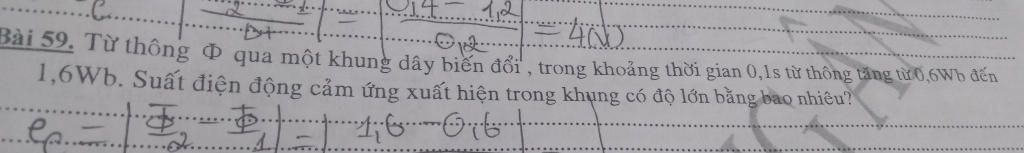 e_c = | Φ_2 - Φ_1 / Δt | = | 0,4 - 1,2 / 0,2 | = 4(V)
Bài 59. Từ thông Φ qua một khung dây biến đổi , trong khoảng thời gian 0,1s từ thông tăng từ 0,6Wb đến
1,6Wb. Suất điện động cảm ứng xuất hiện trong khung có độ lớn bằng bao nhiêu?
e_c = | Φ_2 - Φ_1 | = | 1,6 - 0,6 |